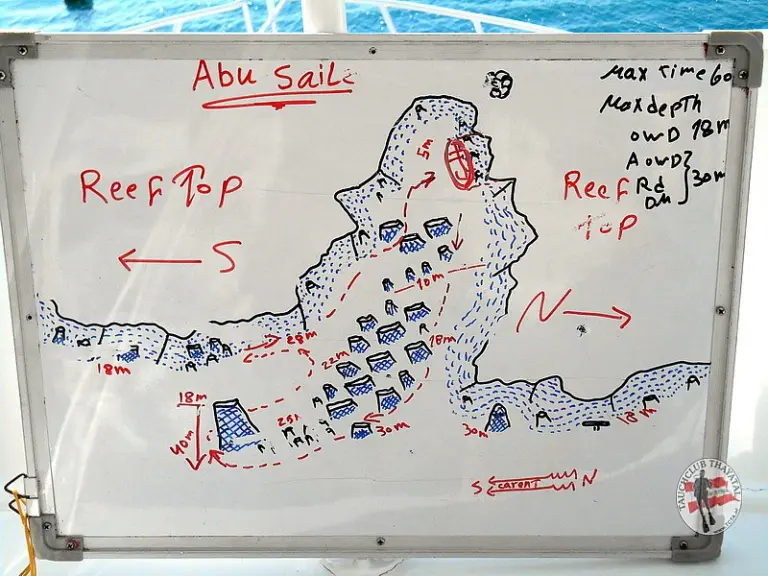 Abu Saile
Max Time 60
Max depth
OWD 18m
AOWD
Rd
DM
30m
Reef Top
Reef
Top
S
N
5m
10m
28m
22m
18m
18m
18m
40m
25m
30m
30m
18m
S carent N
TAUCHCLUB THAYATAL